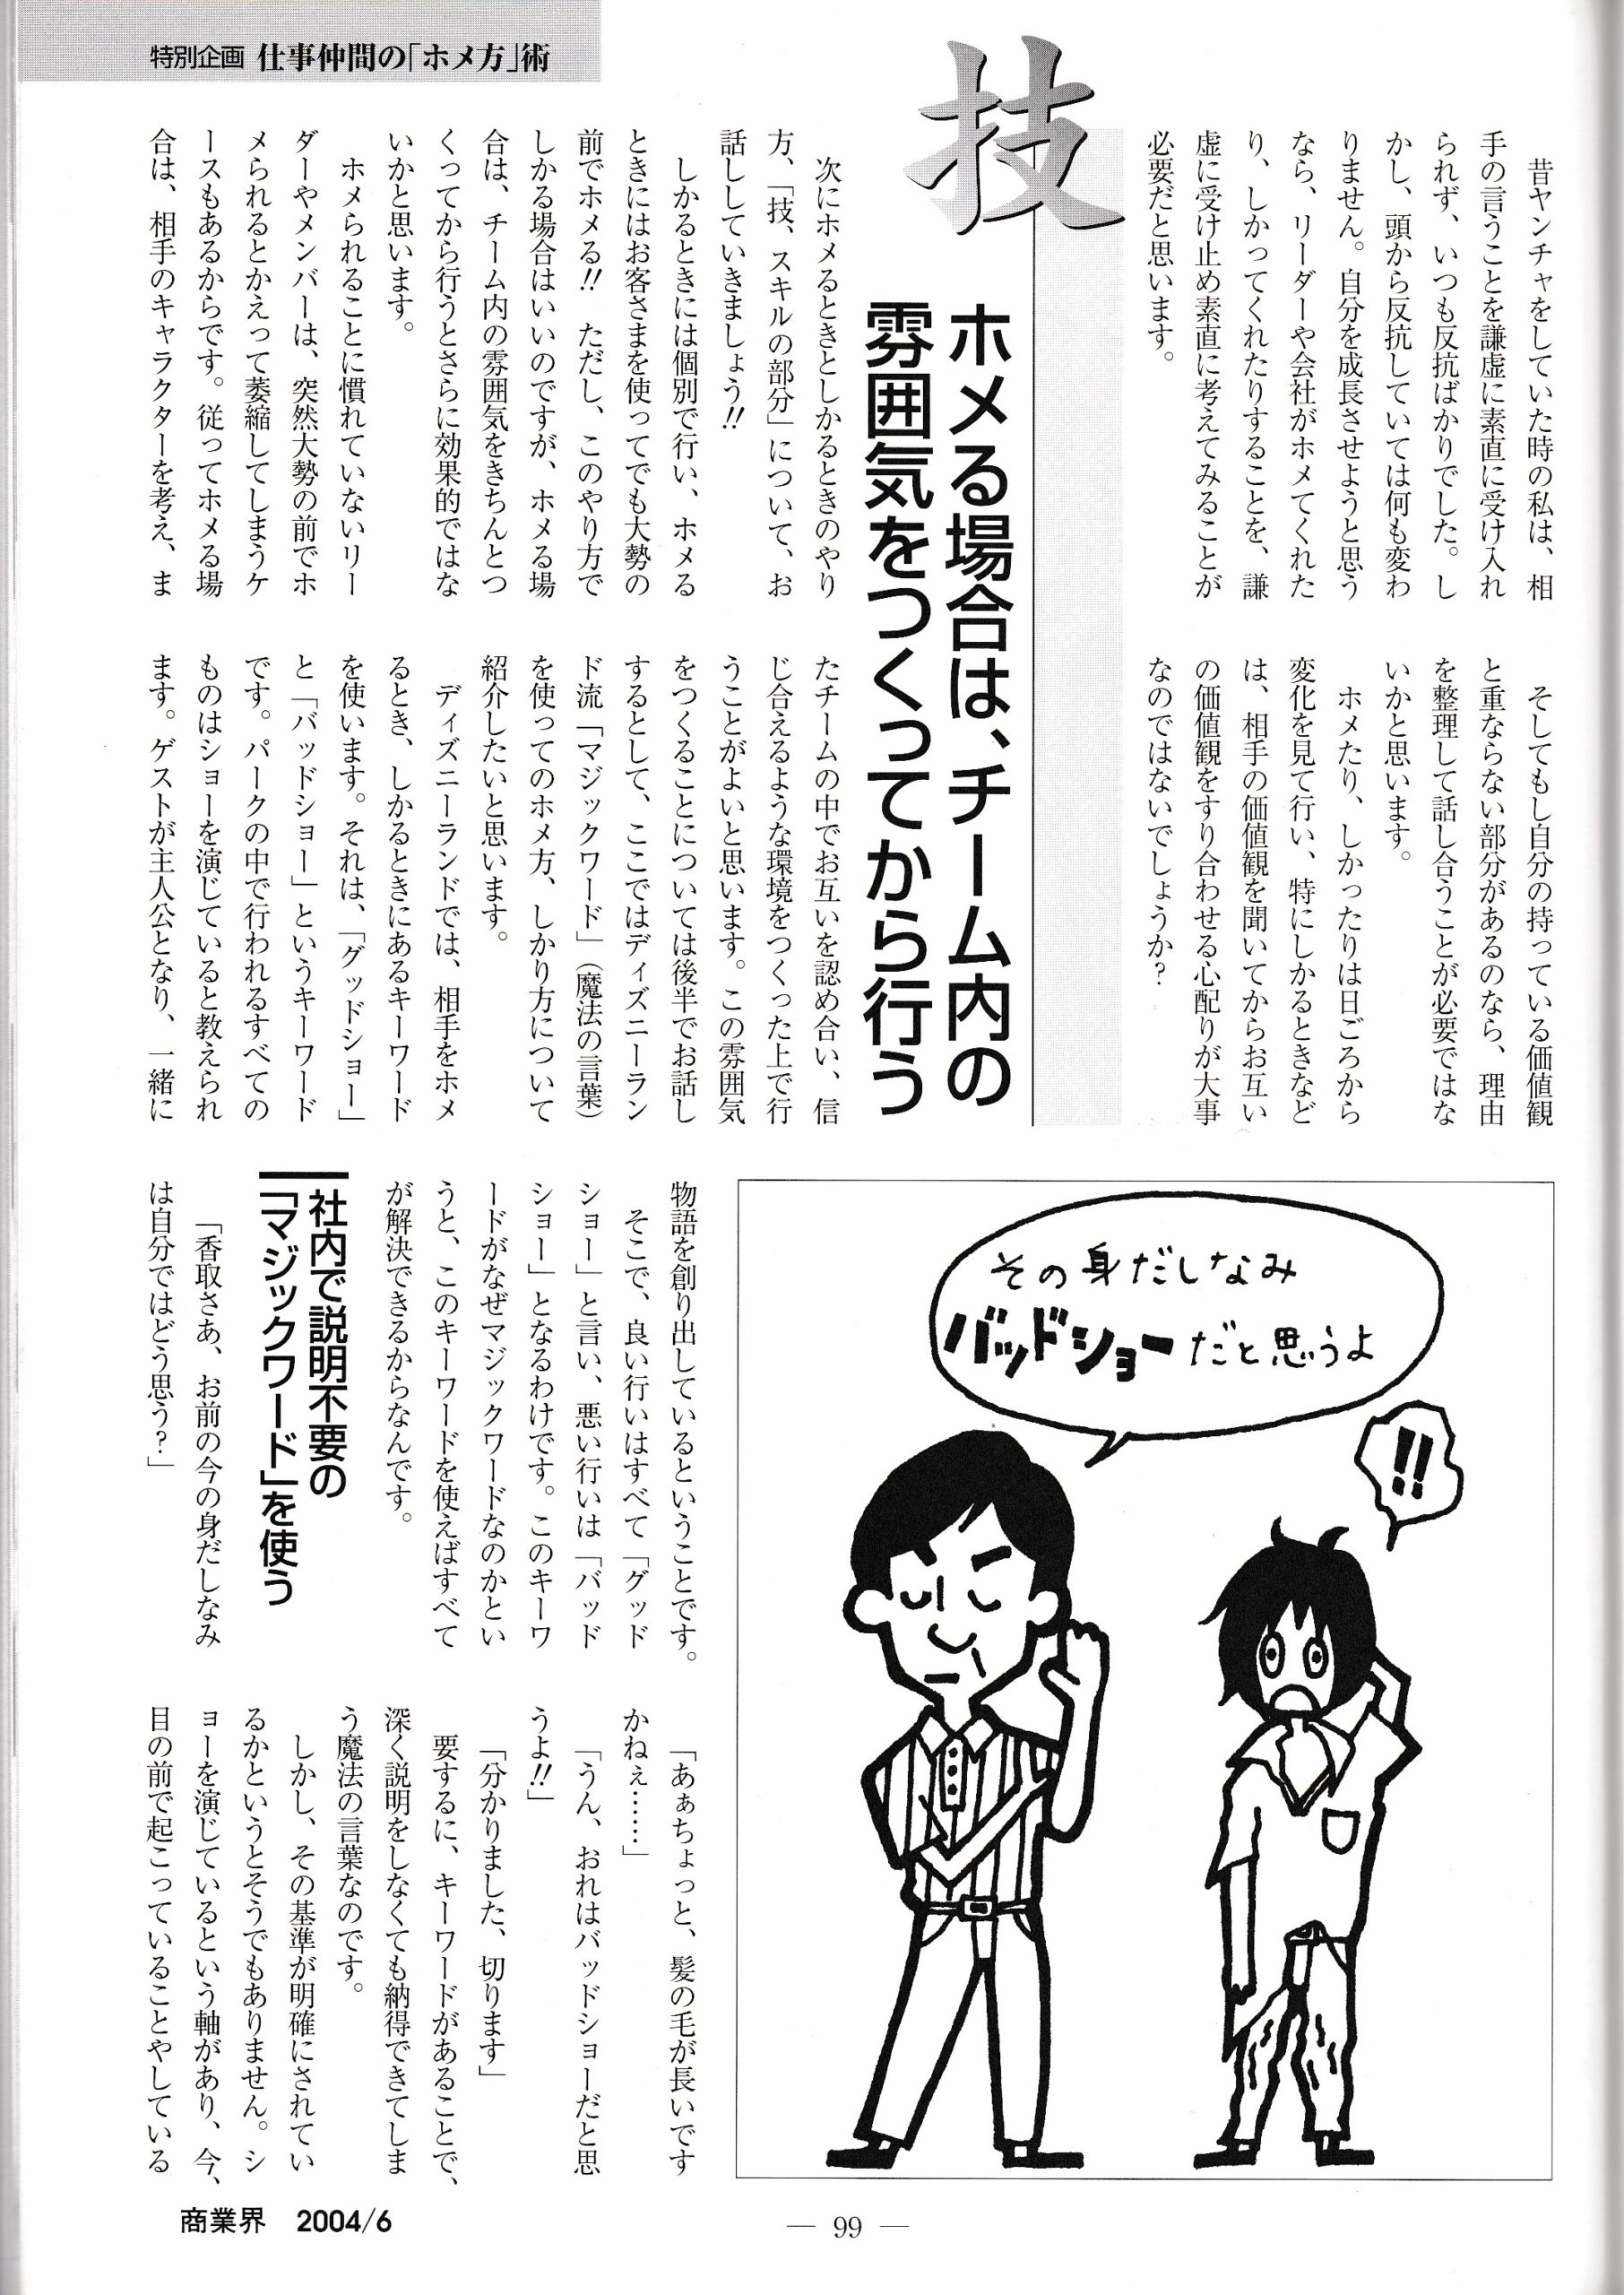 特別企画 仕事仲間の「ホメ方」術
昔ヤンチャをしていた時の私は、相
手の言うことを謙虚に素直に受け入れ
られず、いつも反抗ばかりでした。し
かし、頭から反抗していては何も変わ
りません。自分を成長させようと思う
なら、リーダーや会社がホメてくれた
り、しかってくれたりすることを、謙
虚に受け止め素直に考えてみることが
必要だと思います。
そしてもし自分の持っている価値観
と重ならない部分があるのなら、理由
を整理して話し合うことが必要ではな
いかと思います。
ホメたり、しかったりは日ごろから
変化を見て行い、特にしかるときなど
は、相手の価値観を聞いてからお互い
の価値観をすり合わせる心配りが大事
なのではないでしょうか?
技
ホメる場合は、チーム内の
雰囲気をつくってから行う
次にホメるときとしかるときのやり
方、「技、スキルの部分」について、お
話ししていきましょう!!
しかるときには個別で行い、ホメる
ときにはお客さまを使ってでも大勢の
前でホメる!! ただし、このやり方で
しかる場合はいいのですが、ホメる場
合は、チーム内の雰囲気をきちんとつ
くってから行うとさらに効果的ではな
いかと思います。
ホメられることに慣れていないリー
ダーやメンバーは、突然大勢の前でホ
メられるとかえって萎縮してしまうケ
ースもあるからです。従ってホメる場
合は、相手のキャラクターを考え、ま
たチームの中でお互いを認め合い、信
じ合えるような環境をつくった上で行
うことがよいと思います。この雰囲気
をつくることについては後半でお話し
するとして、ここではディズニーラン
ド流「マジックワード」(魔法の言葉)
を使ってのホメ方、しかり方について
紹介したいと思います。
ディズニーランドでは、相手をホメ
るとき、しかるときにあるキーワード
を使います。それは、「グッドショー」
と「バッドショー」というキーワード
です。パークの中で行われるすべての
ものはショーを演じていると教えられ
ます。ゲストが主人公となり、一緒に
その身だしなみ
バッドショーだと思うよ
!!
物語を創り出しているということです。
そこで、良い行いはすべて「グッド
ショー」と言い、悪い行いは「バッド
ショー」となるわけです。このキーワ
ードがなぜマジックワードなのかとい
うと、このキーワードを使えばすべて
が解決できるからなんです。
社内で説明不要の
「マジックワード」を使う
「香取さあ、お前の今の身だしなみ
は自分ではどう思う?」
「あぁちょっと、髪の毛が長いです
かねぇ……」
「うん、おれはバッドショーだと思
うよ!!」
「分かりました、切ります」
要するに、キーワードがあることで、
深く説明をしなくても納得できてしま
う魔法の言葉なのです。
しかし、その基準が明確にされてい
るかというとそうでもありません。シ
ョーを演じているという軸があり、今、
目の前で起こっていることやしている
商業界 2004/6
— 99 —